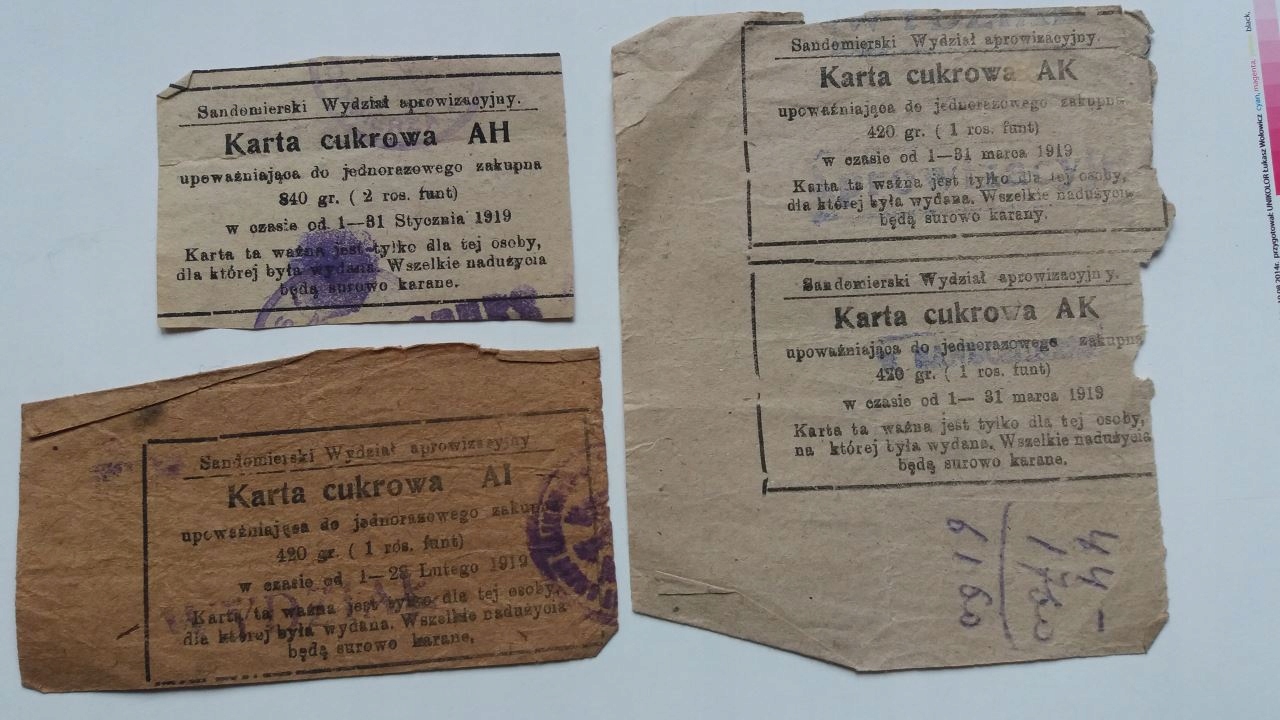 Sandomierski Wydział aprowizacyjny.
Karta cukrowa AH
upoważniająca do jednorazowego zakupna
840 gr. ( 2 ros. funt)
w czasie od 1—31 Stycznia 1919
Karta ta ważna jest tylko dla tej osoby,
dla której była wydana. Wszelkie nadużycia
będą surowo karane.
Sandomierski Wydział aprowizacyjny
Karta cukrowa AI
upoważniająca do jednorazowego zakup
420 gr. ( 1 ros. funt)
w czasie od 1—28 Lutego 1919
Karta ta ważna jest tylko dla tej osoby,
dla której była wydana. Wszelkie nadużycia
będą surowo karane.
Sandomierski Wydział aprowizacyjny.
Karta cukrowa AK
upoważniająca do jednorazowego zakupna
420 gr. ( 1 ros. funt)
w czasie od 1—31 marca 1919
Karta ta ważna jest tylko dla tej osoby,
dla której była wydana. Wszelkie nadużycia
będą surowo karany.
Sandomierski Wydział aprowizacyjny.
Karta cukrowa AK
upoważniająca do jednorazowego zakupna
420 gr. ( 1 ros. funt)
w czasie od 1— 31 marca 1919
Karta ta ważna jest tylko dla tej osoby,
na której była wydana. Wszelkie nadużycia
będą surowo karane.
44 –
1760
6160
przygotował: UNIKOLOR Łukasz Wołowicz cyan, magenta, black,